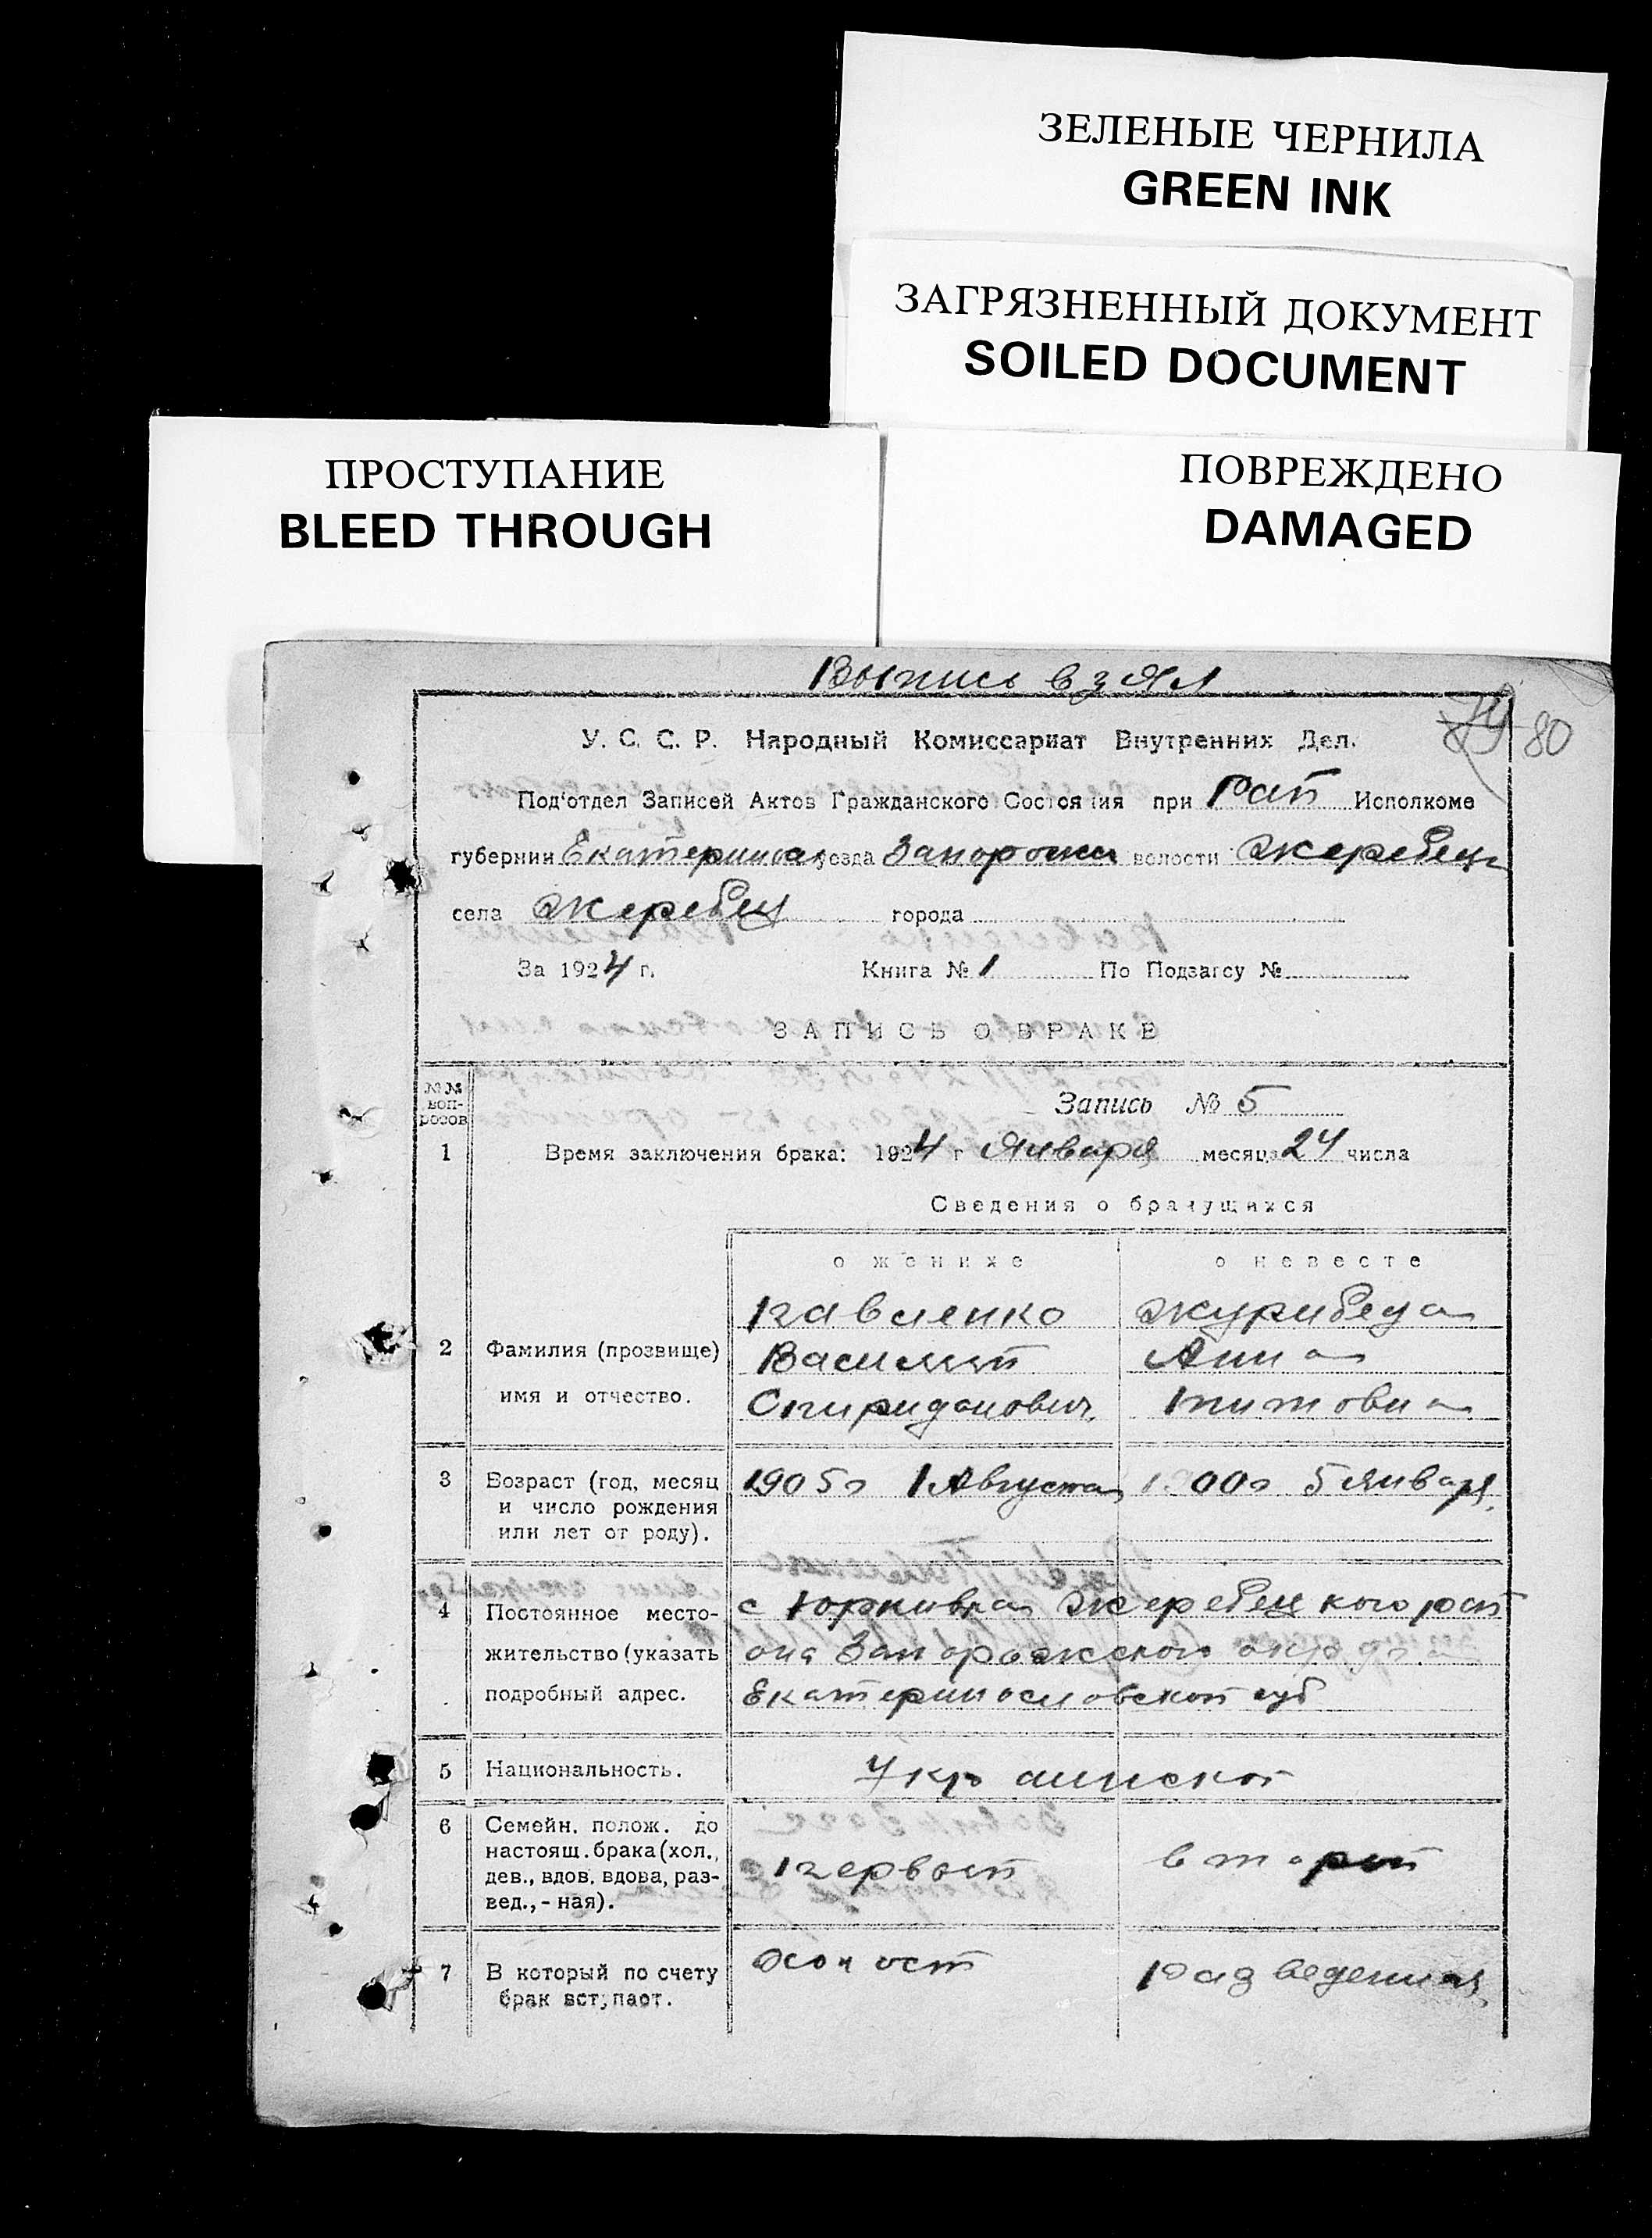 ЗЕЛЕНЫЕ ЧЕРНИЛА
GREEN INK
ЗАГРЯЗНЕННЫЙ ДОКУМЕНТ
SOILED DOCUMENT
ПРОСТУПАНИЕ
BLEED THROUGH
ПОВРЕЖДЕНО
DAMAGED
Выпись взял
80
У. С. С. Р. Народный Комиссариат Внутренних Дел.
Под'отдел Записей Актов Гражданского Состояния при Рай Исполкоме
губернии Екатеринос уезда Запорожск волости Жеребец
села Жеребец города
За 1924 г. Книга № 1 По Подзагсу №
ЗАПИСЬ О БРАКЕ
№№ воп-росов
Запись № 5
1 Время заключения брака: 1924 г Января месяца 24 числа
Сведения о брачущихся
о женихе о невесте
Павленко
2 Фамилия (прозвище) Василий Анна
имя и отчество. Спиридонович Титовна
3 Возраст (год, месяц 1905г 1 Августа 1900г 5 Января
и число рождения
или лет от роду).
4 Постоянное место- с Юрковка Жеребецкого рай
жительство (указать она Запорожского округа
подробный адрес. Екатеринославской губ
5 Национальность. Украинской
6 Семейн. полож. до
настоящ. брака (хол., первый второй
дев., вдов, вдова, раз-
вед.,- ная).
7 В который по счету холост Разведенная
брак вступает.